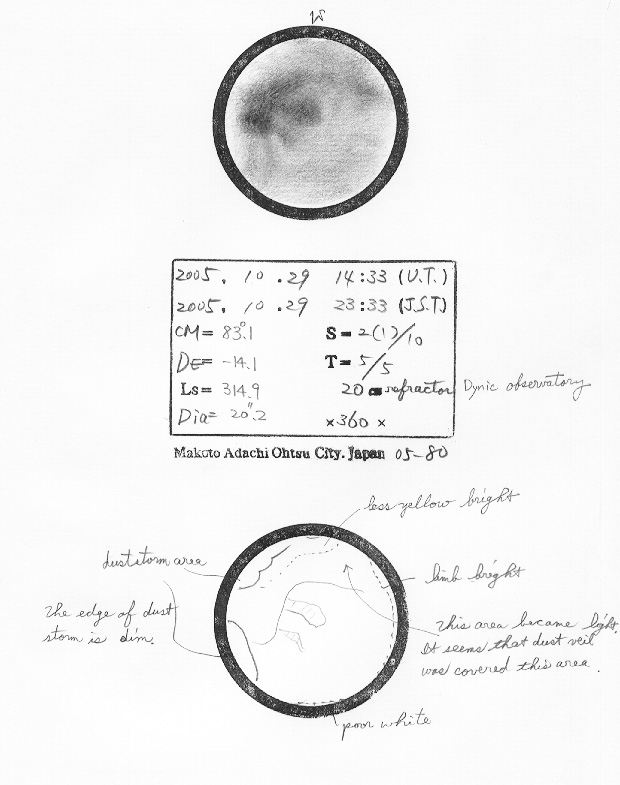 2005. 10. 29 14:33 (U.T.)
2005. 10. 29 23:33 (J.S.T)
CM= 83°.1 S= 2(1)/10
DE= -14.1 T= 5/5
Ls= 314.9 20 cm refractor Dynic observatory
Dia= 20".2 ×360 ×
Makoto Adachi Ohtsu City. Japan 05-80
less yellow bright
duststorm area
limb bright
The edge of dust
storm is dim.
This area became light.
It seems that dust veil
was covered this area.
poor white